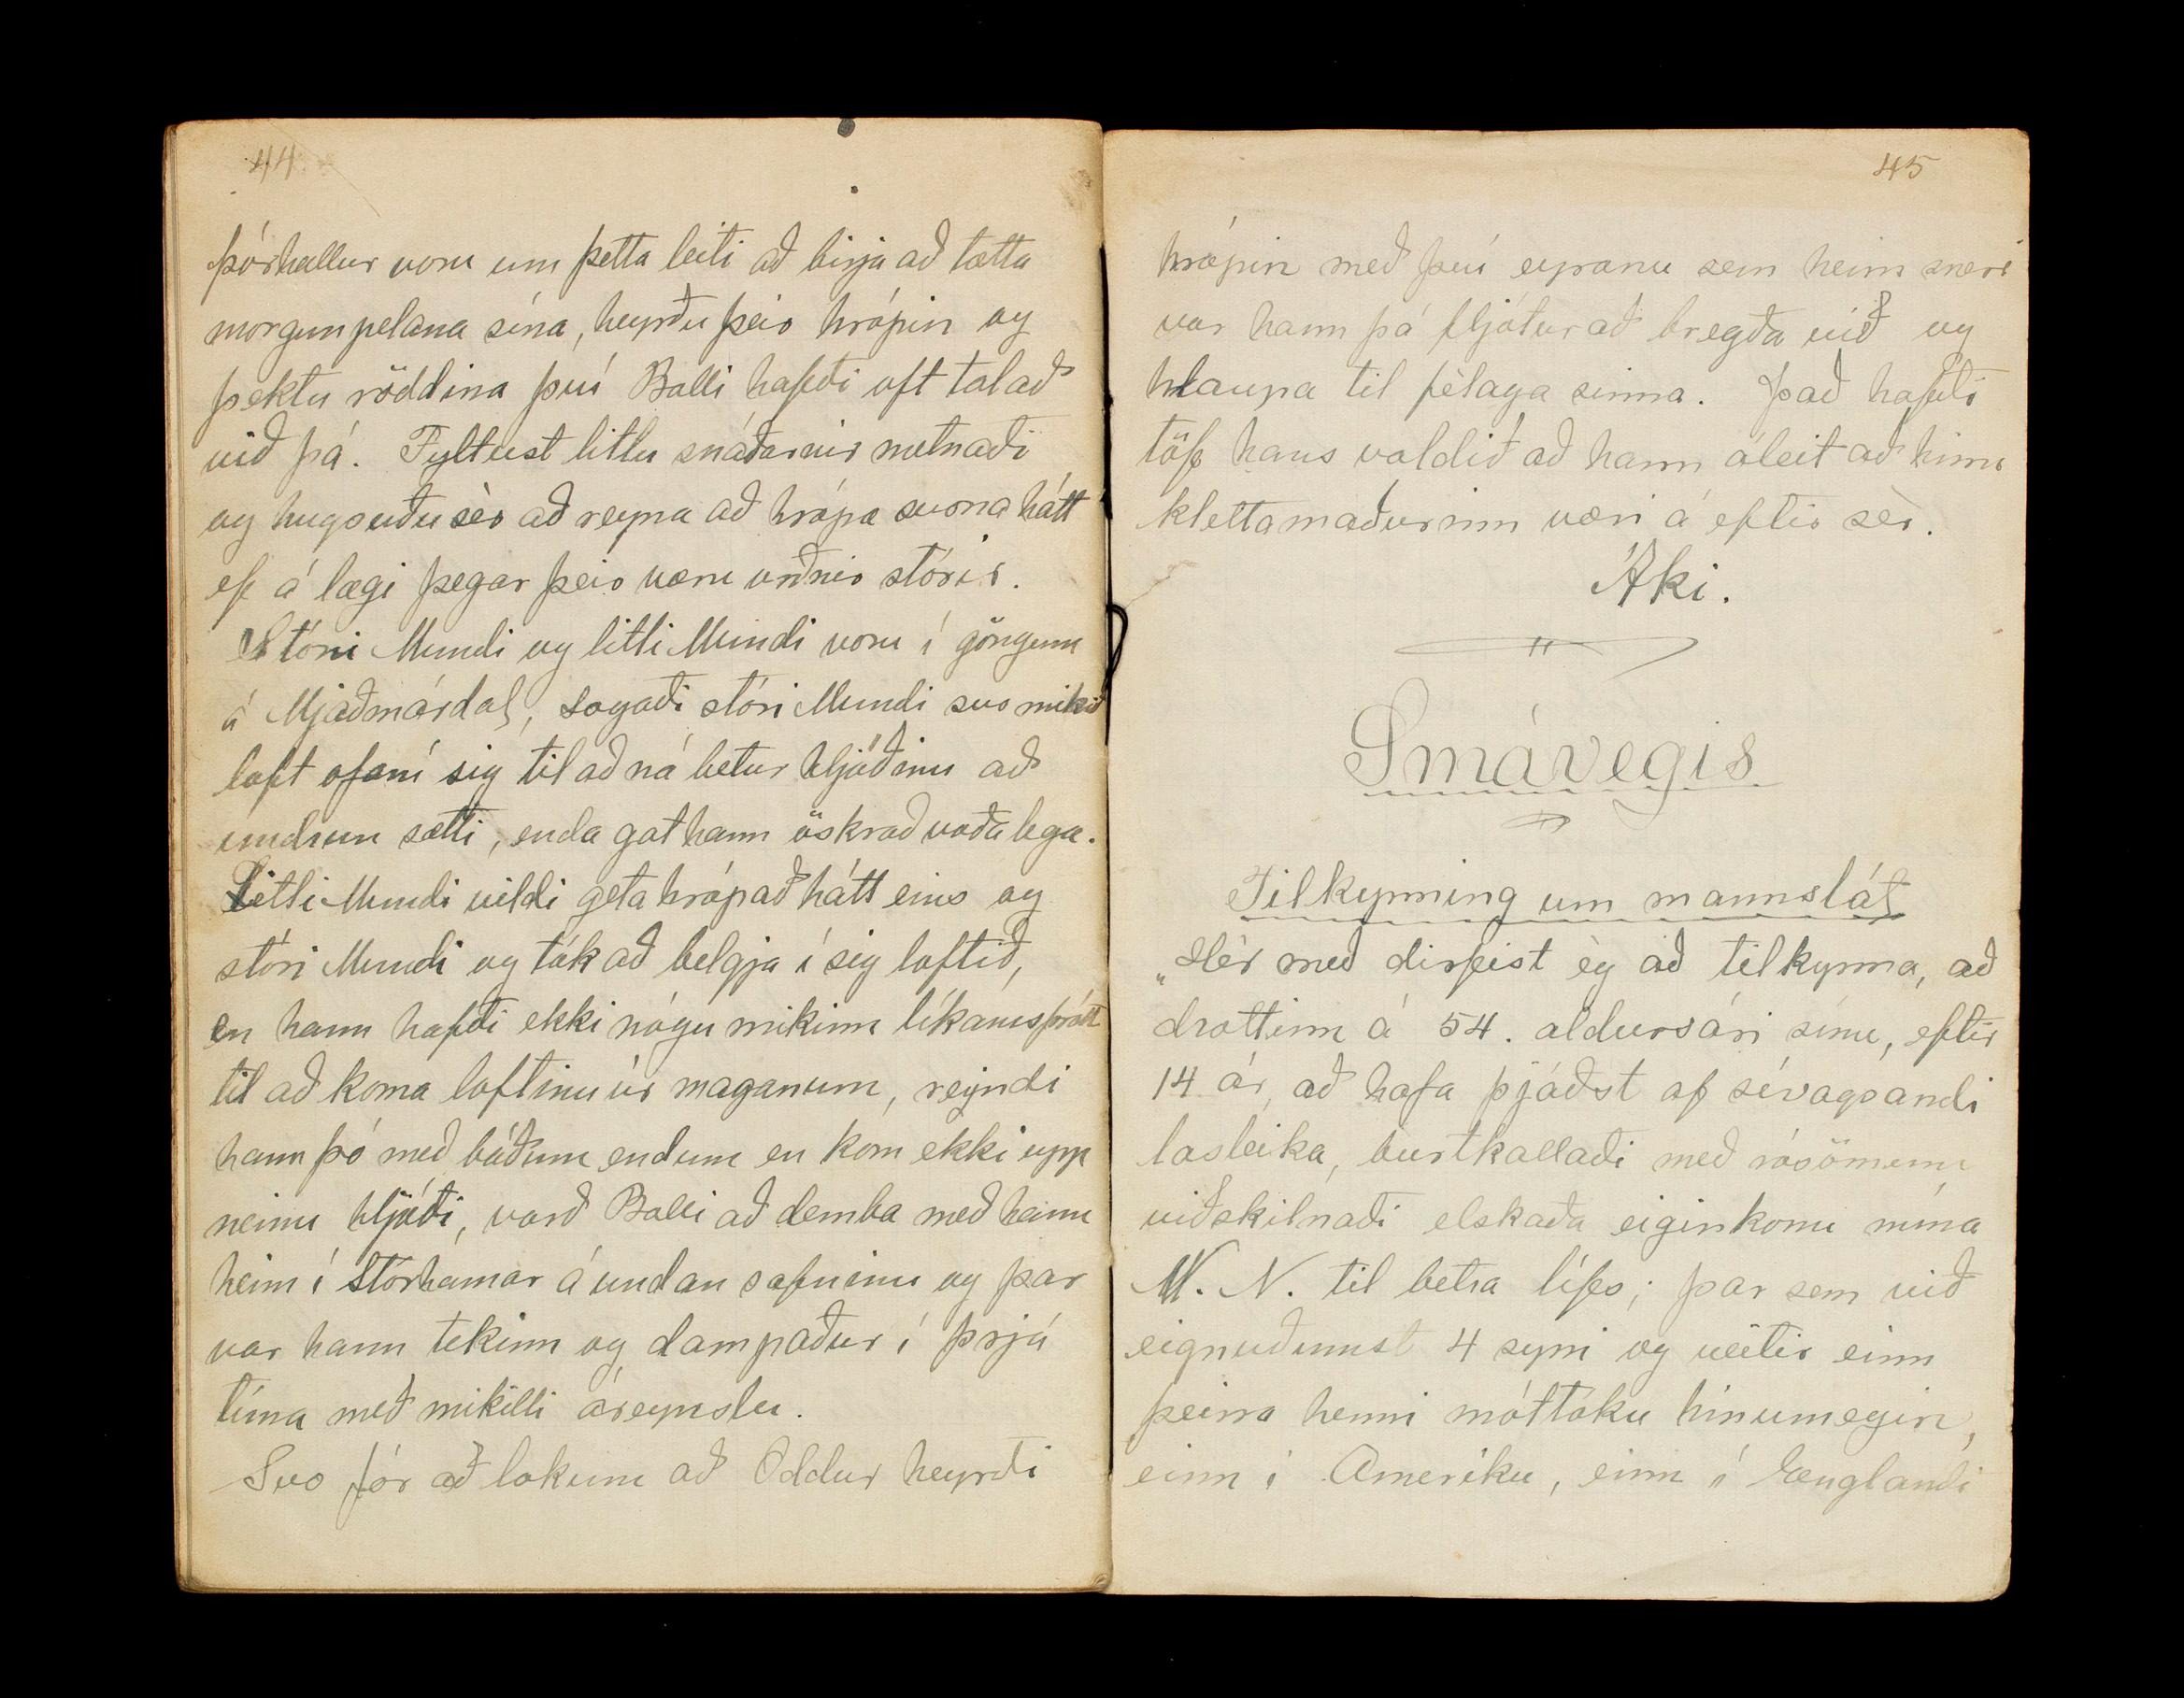 44
þórhallur voru um þetta leiti að birja að tætta
morgunpelana sína, heyrðu þeir hrópin og
þektu röddina því Balli hafði oft talað
við þá. Fyltust litlu snáðarnir metnaði
og hugsuðu sèr að reyna að hrópa svona hátt
ef á lægi þegar þeir væru orðnir stórir.
Stóri Mundi og litli Mundi voru í göngum
á Mjaðmárdal, sogaði stóri Mundi svo mikið
loft ofaní sig til að ná betur hljóðinu að
undrun sætti, enda gat hann öskrað voðalega.
Litli Mundi vildi geta hrópað hátt eins og
stóri Mundi og tók að belgja í sig loftið,
en hann hafði ekki nógu mikinn líkamsþrótt
til að koma loftinu úr maganum, reyndi
hann þó með báðum endum en kom ekki upp
neinu hljóði, varð Balli að demba með hann
heim í Stórhamar á undan safninu og þar
var hann tekinn og dampaður í þrjá
tíma með mikilli áreynslu.
Svo fór að lokum að Oddur heyrði
45
hrópin með því eyranu sem heim sneri
var hann þá fljótur að bregða við og
hlaupa til fèlaga sinna. Það hafði
töf hans valdið að hann áleit að hinn
klettamaðurinn væri á eftir sèr.
Áki.
Smávegis
Tilkynning um mannslát
„Hèr með dirfist èg að tilkynna, að
drottinn á 54. aldursári sínu, eftir
14 ár, að hafa þjáðst af sívagsandi
lasleika, burtkallaði með rósömum
viðskilnaði elskaða eiginkonu mína
M. N. til betra lífs; þar sem við
eignuðumst 4 syni og veitir einn
þeirra henni móttöku hinumegin,
einn í Ameríku, einn í Eenglandi